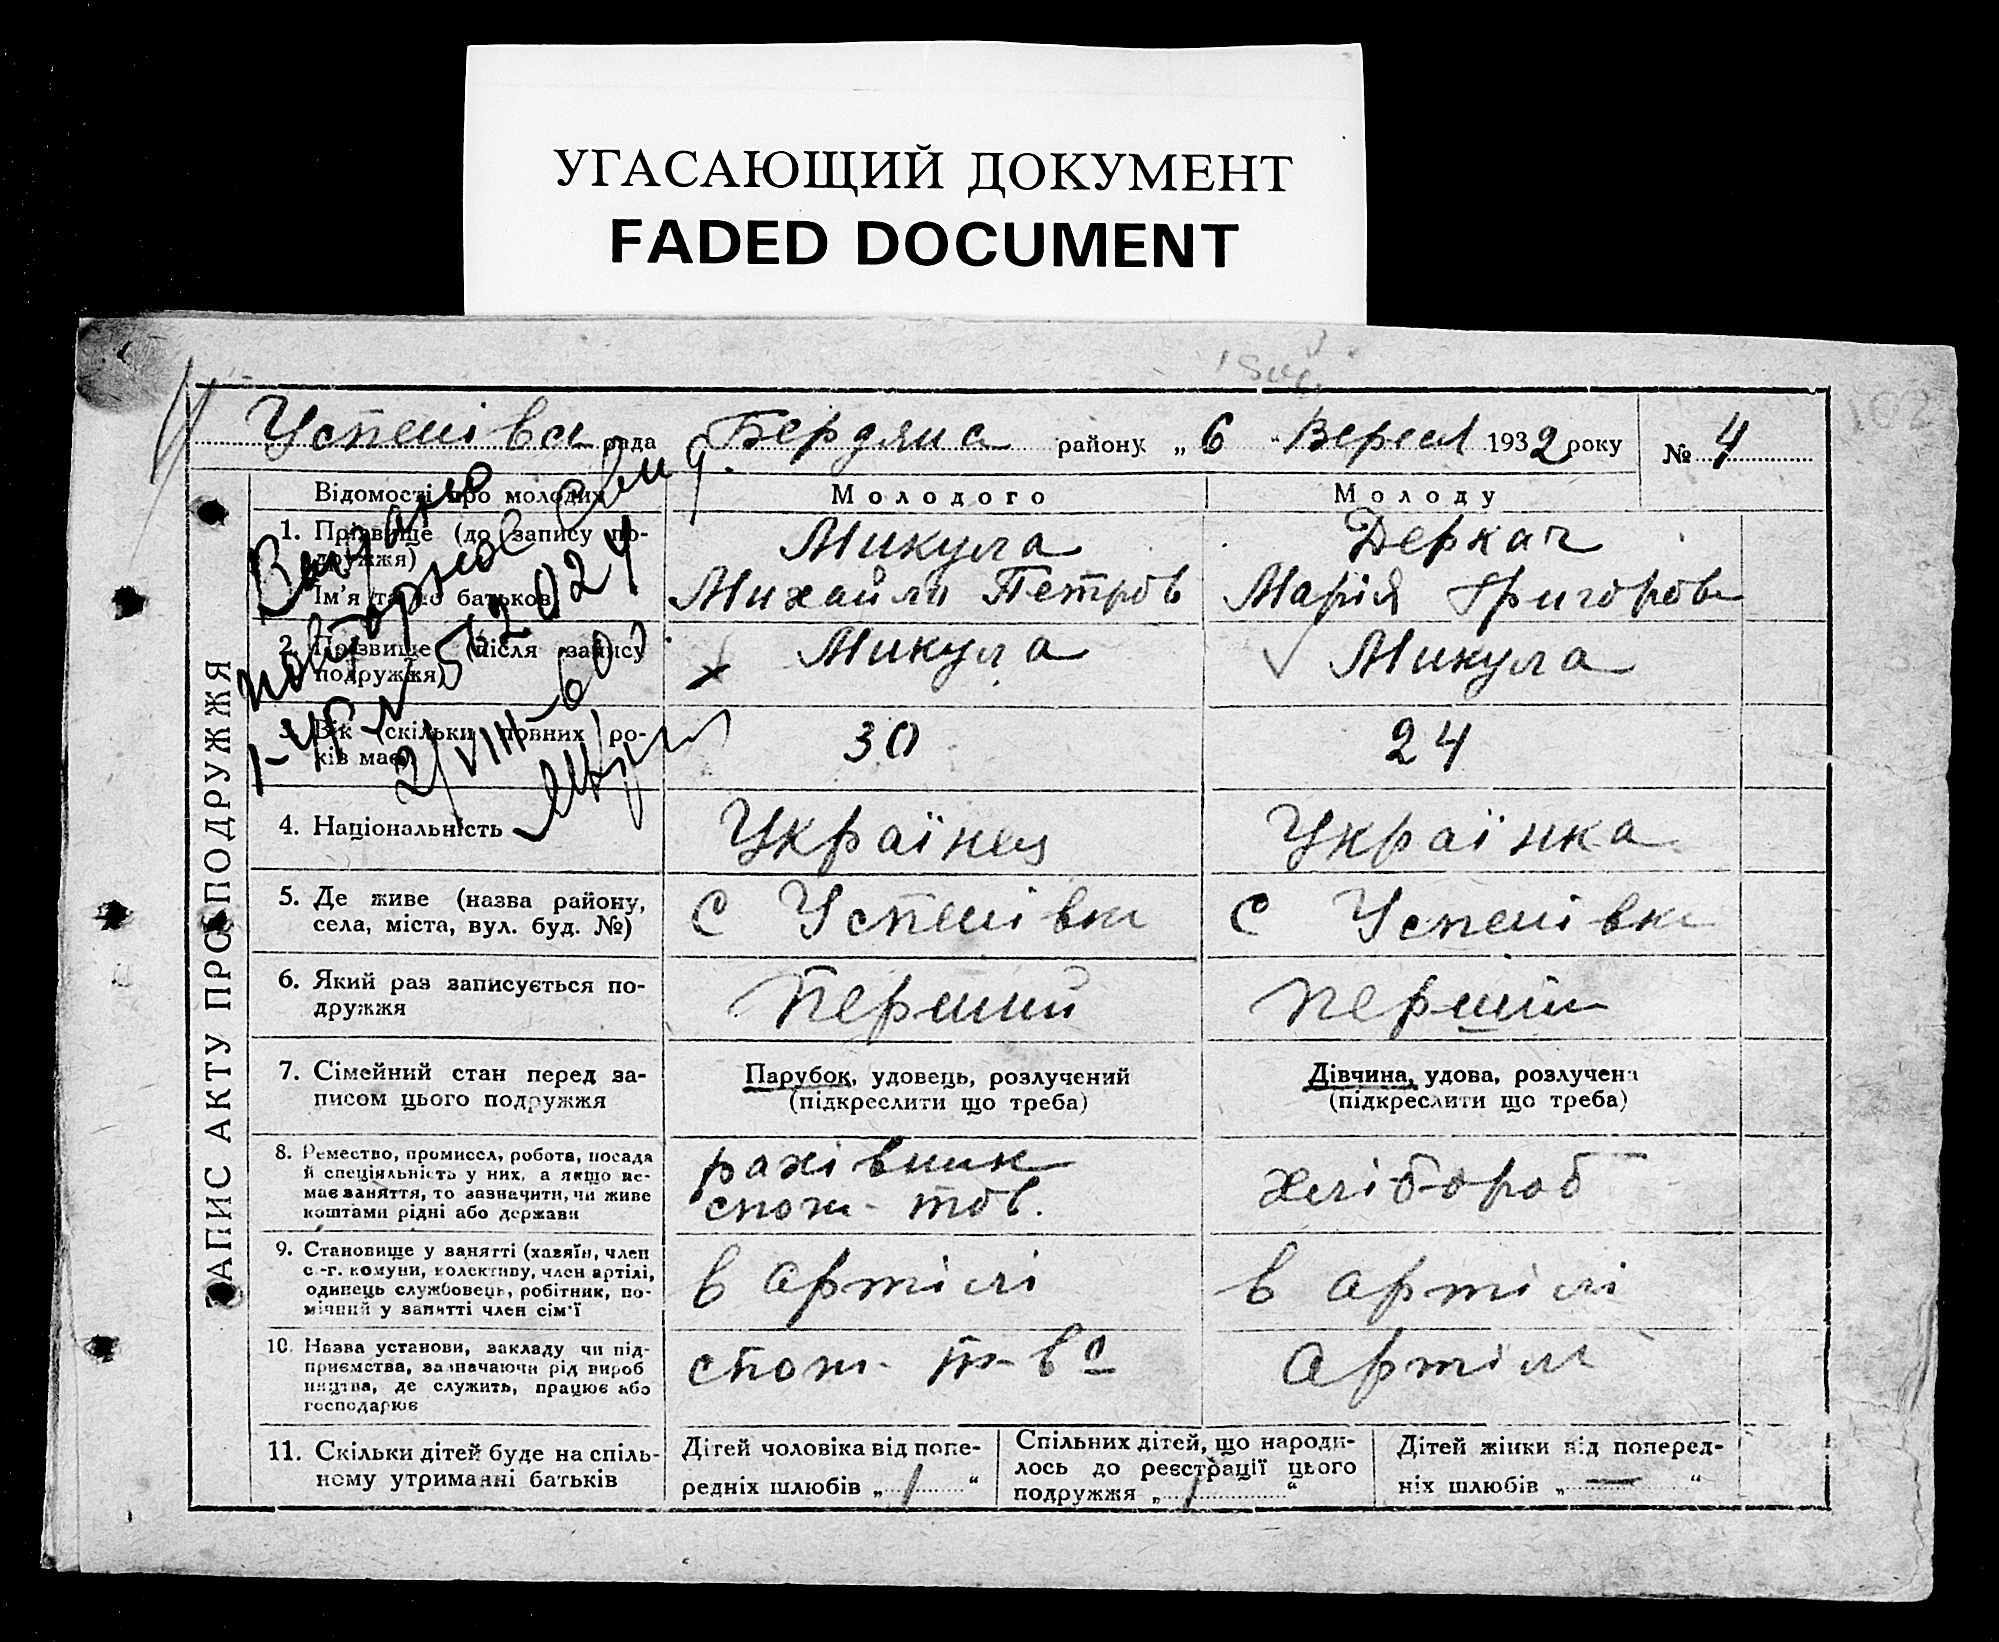 УГАСАЮЩИЙ ДОКУМЕНТ
FADED DOCUMENT
Успенівсь рада Бердянс району „ 6 “ Вересн 1932 року № 4
ЗАПИС АКТУ ПРО ПОДРУЖЖЯ
Відомості про молодих
Молодого
Молоду
1. Прізвище (до запису по-
дружжя)
Микула
Деркач
Ім'я та по батькові
Михайло Петров
Марія Григоров
2. Прізвище (після запису
подружжя)
Микула
Микула
3. Вік (скільки повних ро-
ків має)
30
24
4. Національність
Українец
Українка
5. Де живе (назва району,
села, міста, вул. буд. №)
с Успенівка
с Успенівка
6. Який раз записується по-
дружжя
Перший
перший
7. Сімейний стан перед за-
писом цього подружжя
Парубок, удовець, розлучений
(підкреслити що треба)
Дівчина, удова, розлучена
(підкреслити що треба)
8. Ремество, промисел, робота, посада
й спеціяльність у них, а якщо не-
має заняття, то зазначити, чи живе
коштами рідні або держави
рахівник
спож. тов.
хлібороб
9. Становище у занятті (хазяїн, член
с.-г. комуни, колективу, член артілі,
одинець службовець, робітник, по-
мічний у занятті член сім'ї
в артілі
в артілі
10. Назва установи, закладу чи під-
приємства, зазначаючи рід вироб
ництва, де служить, працює або
господарює
спож. т-во
Артіль
11. Скільки дітей буде на спіль-
ному утриманні батьків
Дітей чоловіка від попе-
редніх шлюбів „ / “
Спільних дітей, що народи-
лось до реєстрації цього
подружжя „ / “
Дітей жінки від поперед-
ніх шлюбів „ — “
Выдано
повторное свид.
1-ЧР № 512024
2/VIII-60